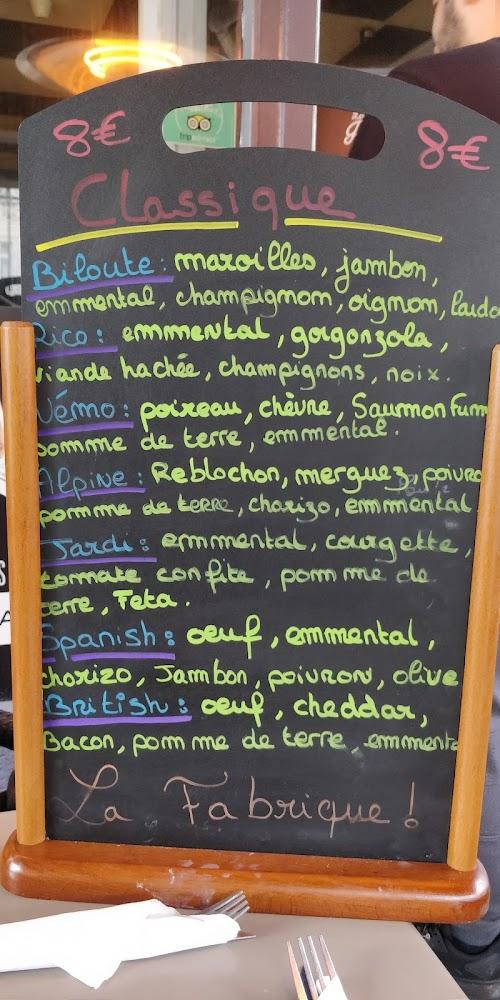 8€ 8€
Classique
Biloute: maroilles, jambon,
emmental, champignom, oignom, lardo
Rico: emmental, gorgonzola,
viande hachée, champignons, noix.
Némo: poireau, chèvre, Saumon fum
pomme de terre, emmental.
Alpine: Reblochon, merguez, poivro
pomme de terre, chorizo, emmental
Jardi: emmental, courgette,
tomate confite, pomme de
terre, Feta.
Spanish: oeuf, emmental,
chorizo, Jambon, poivron, olive
British: oeuf, cheddar,
Bacon, pomme de terre, emmenta
La Fabrique!